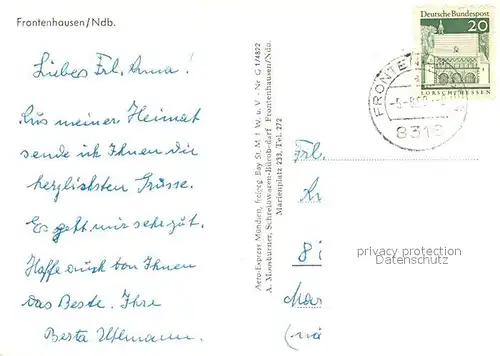 Frontenhausen/Ndb.
Liebes Frl. Anna!
Aus meiner Heimat
sende ich Ihnen die
herzlichsten Grüsse.
Es geht mir sehr gut.
Hoffe auch von Ihnen
das Beste. Ihre
Berta
Aero-Express München, freigeg. Bay St. M. f W. u. V - Nr G 1/4822
A. Moosburner, Schreibwaren-Bürobedarf Frontenhausen/Ndb.
Marienplatz 233, Tel. 272
Deutsche Bundespost
20
LORSCH/HESSEN
FRONTEN
8319
Frl.
privacy protection
watermark